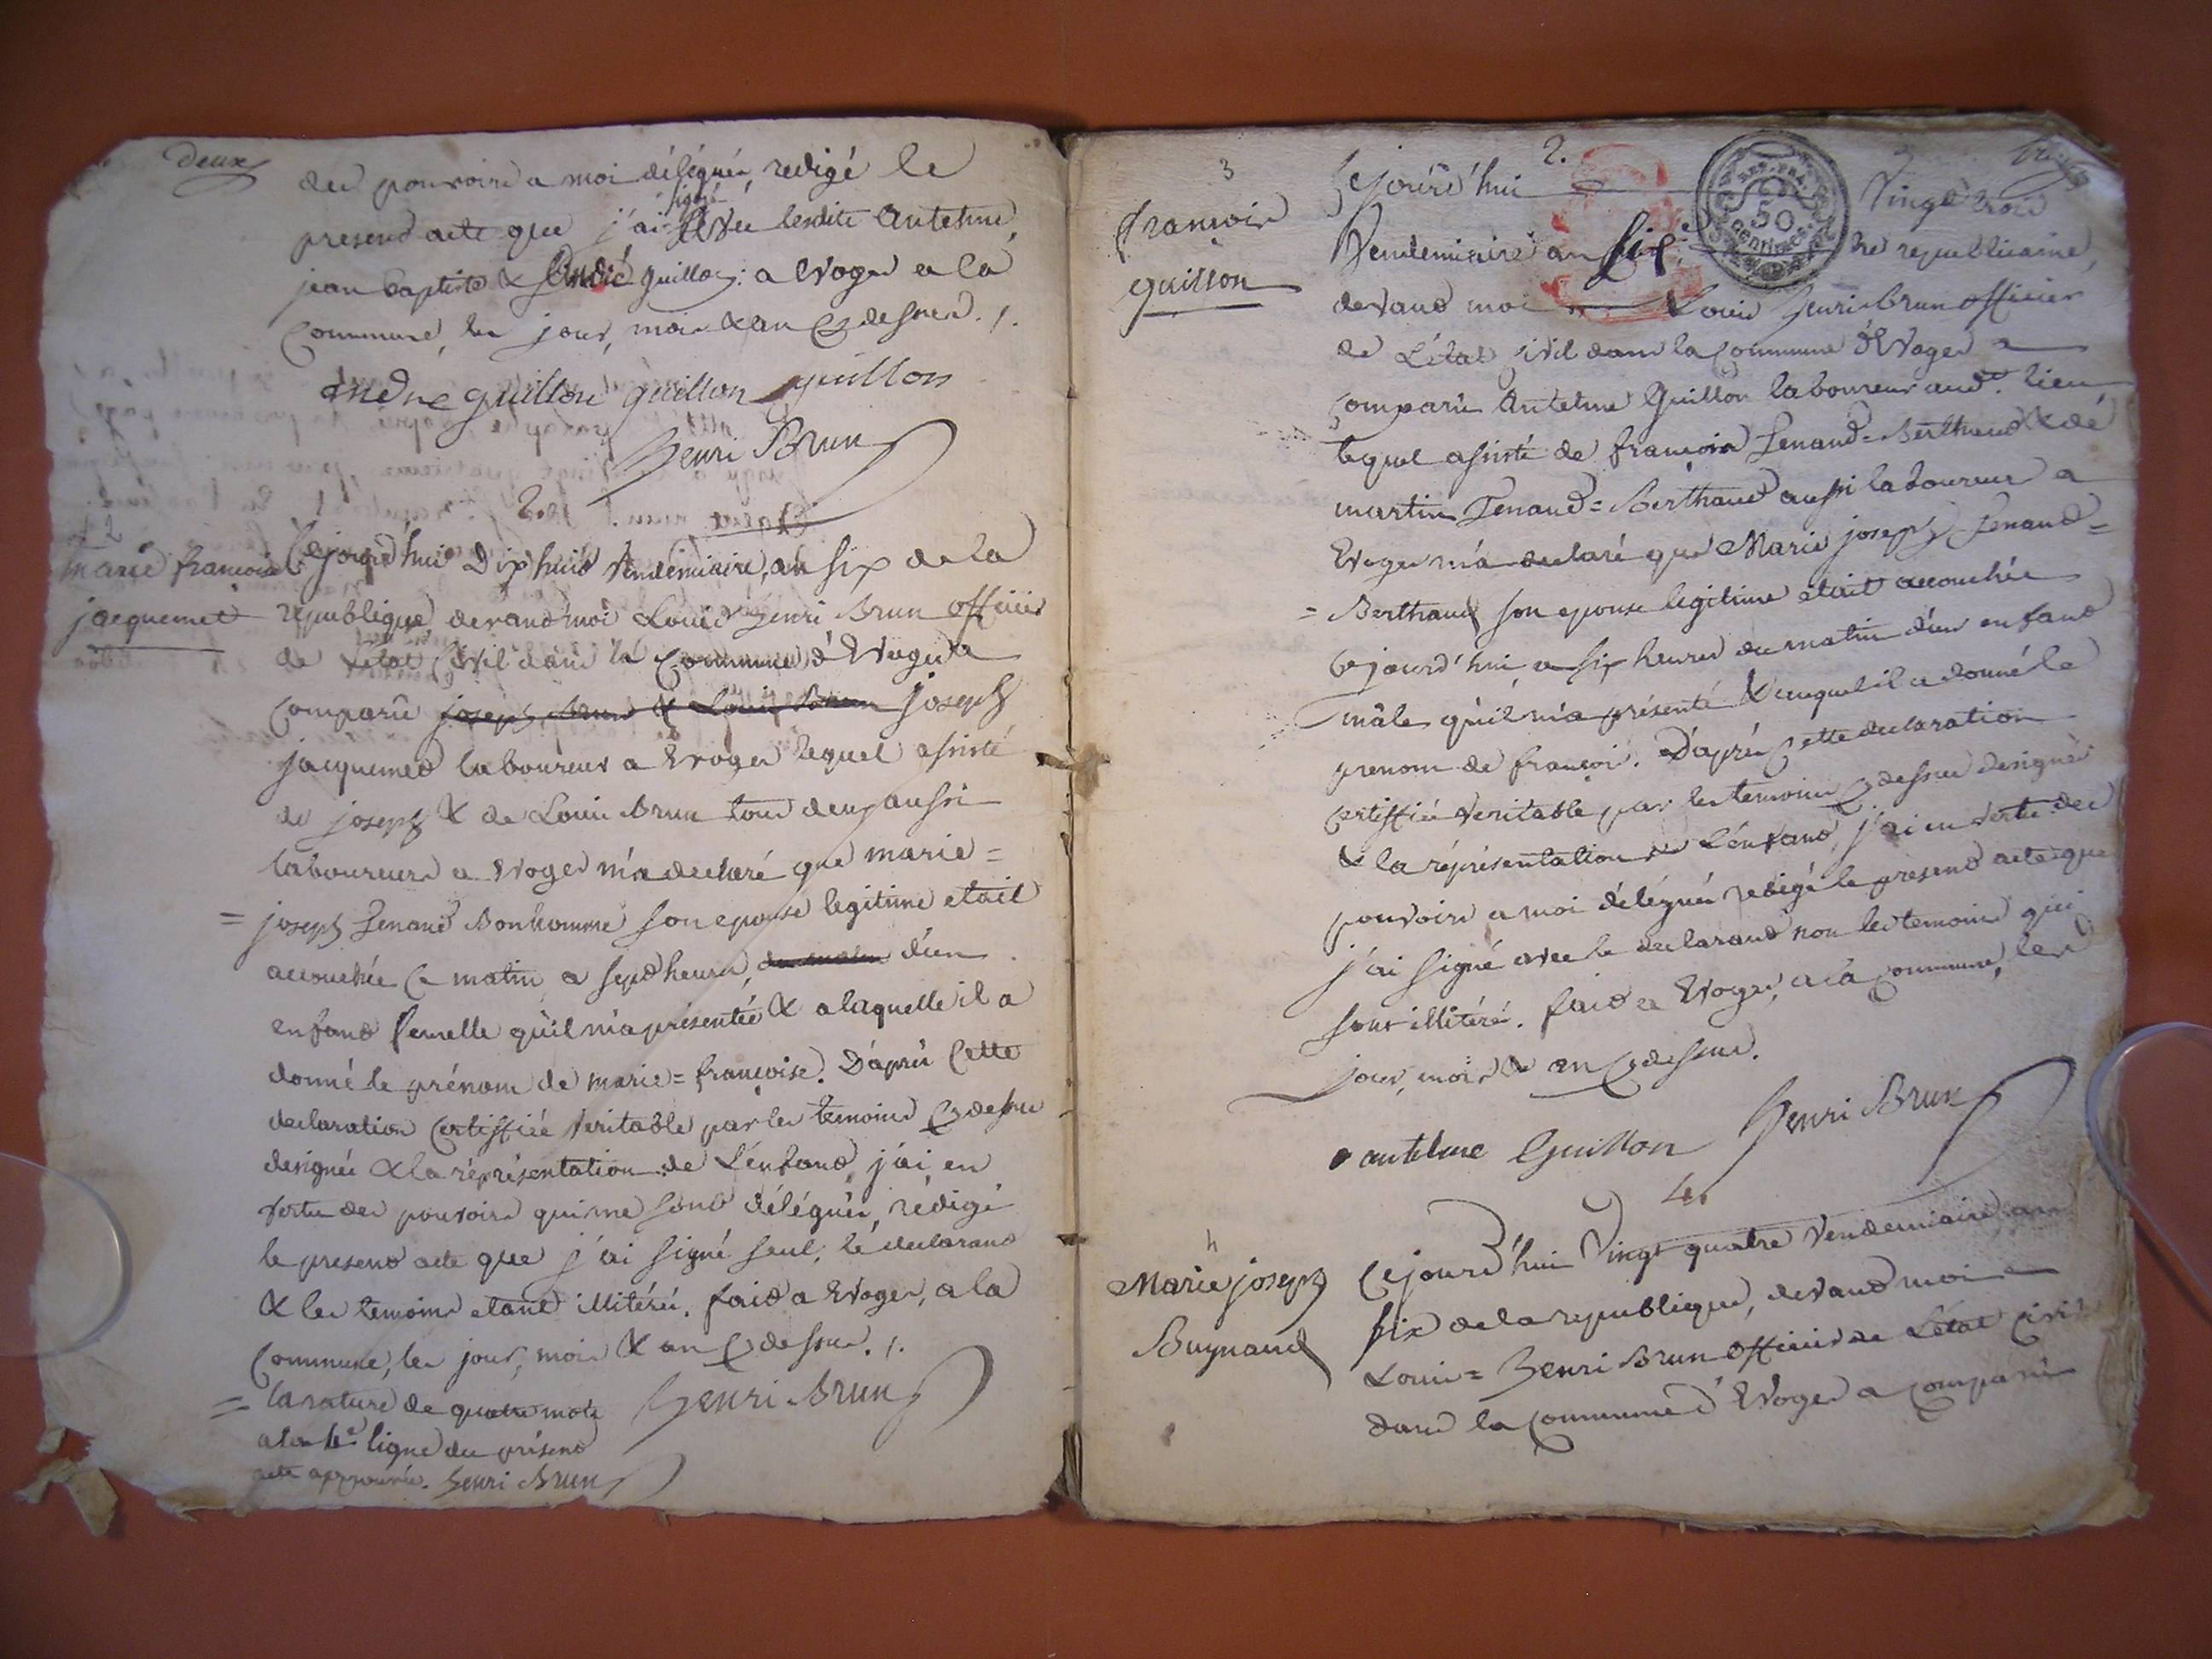 deux
des pouvoirs a moi délégués, redigé le
present acte que j'ai signé avec lesdits antelme,
jean baptiste & andré guillon: a Evoges a la
Commune, les jour, mois & an Cy dessus ./.
andre guillon guillon guillon
henri Brun
2.
2
marie francoise
jacquemet
Cejourd'hui Dix huit vendémiaire, an six de la
republique devant moi Louis henri Brun officier
de L'état Civil dans la Commune d'Evoges a
Comparu joseph Brun & Louis Brun joseph
jacquemet laboureur a Evoges lequel assisté
de joseph & de Louis Brun tous deux aussi
laboureurs a Evoges m'a declaré que marie =
= joseph Senand Bonhomme son epouse legitime etait
accouchée Ce matin a sept heures, du matin d'un
enfant femelle qu'il m'a presentée & a laquelle il a
donné le prénom de marie = françoise. D'après Cette
declaration Certiffiée veritable par les temoins Cy dessus
designés & la réprésentation de L'enfant, j'ai en
vertu des pouvoirs qui me sont délégués, rédigé
le present acte que j'ai signé seul, le declarant
& les temoins etant illitérés. fait a Evoges, a la
Commune, les jour, mois & an Cy dessus ./.
= la rature de quatre mots
a la 4e ligne du présent
acte approuvée. henri Brun
henri Brun
2.
REP. FRA.
50
centimes.
3
francois
guillon
Cejourd'hui vingt trois
Vendemiaire an six
re republicaine,
devant moi Louis henri Brun officier
de L'état Civil dans la Commune d'Evoges a
Comparu Antelme Guillon laboureur aud. lieu
lequel assisté de françois Senand = Berthaud & de
martin Senand = Berthaud aussi laboureurs a
Evoges m'a declaré que Marie joseph Senand =
= Berthaud son epouse legitime etait accouchée
Cejourd'hui, a six heures du matin d'un enfant
mâle qu'il m'a présenté & auquel il a donné le
prenom de françois. D'après Cette declaration
Certiffiée veritable par les temoins Cy dessus designés
& la réprésentation de L'enfant, j'ai en vertu des
pouvoirs a moi délégués redigé le present acte que
j'ai signé avec le declarant non les temoins qui
sont illitérés. fait a Evoges, a la Commune, les
jour, mois & an Cy dessus.
antelme Guillon henri Brun
4.
4
Marie joseph
Buynand
Cejourd'hui vingt quatre vendemiaire an
six de la republique, devant moi
Louis = henri Brun officier de L'état Civil
dans la Commune d'Evoges a comparu